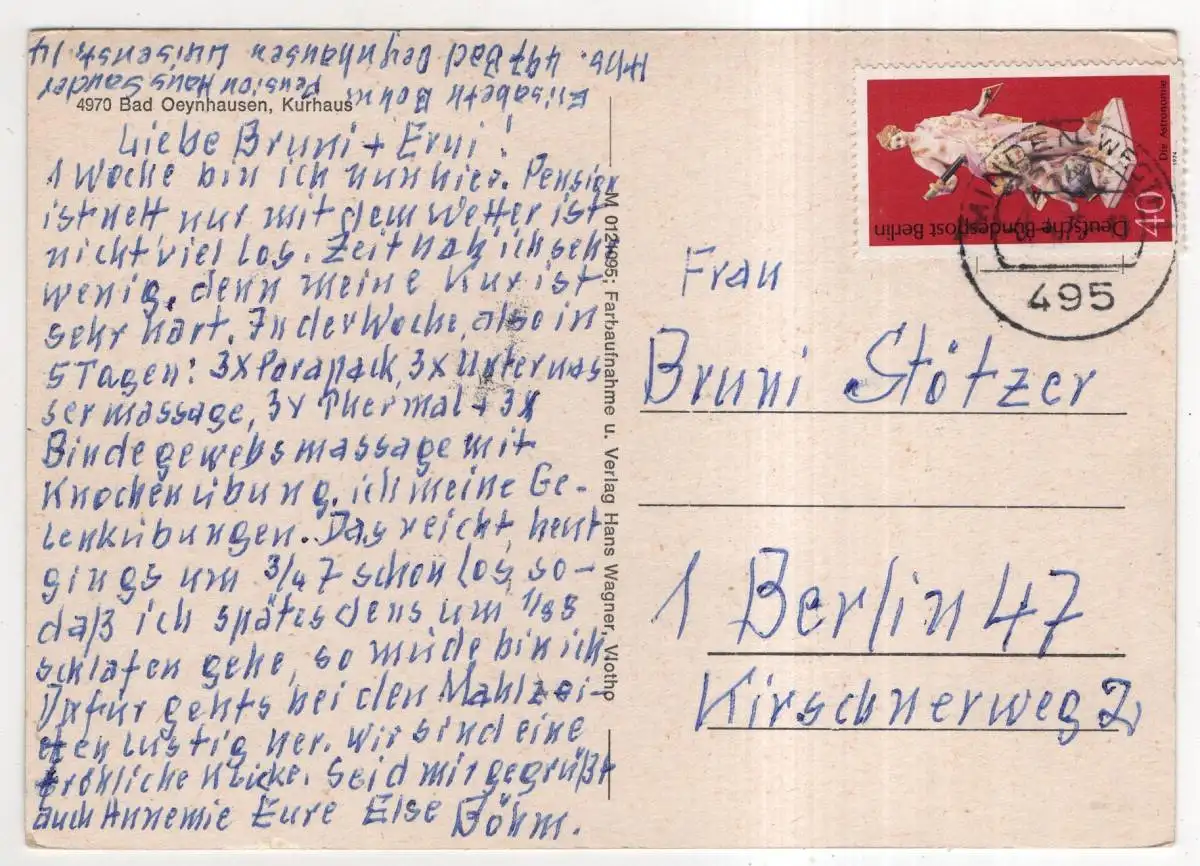 Abs. 497 Bad Oeynhausen Luisenstr. 14
Elisabeth Böhm Pension Haus Sander
4970 Bad Oeynhausen, Kurhaus
Liebe Bruni + Erni!
1 Woche bin ich nun hier. Pension
ist nett nur mit dem Wetter ist
nicht viel los. Zeit hab ich seh
wenig, denn meine Kur ist
sehr hart. In der Woche, also in
5 Tagen: 3x Parapack, 3x Unterwas
sermassage, 3x Thermal + 3x
Bindegewebsmassage mit
Knochenübung, ich meine Ge-
lenkübungen. Das reicht, heut
gings um 3/4 7 schon los, so-
daß ich spätesdens um 1/2 9
schlafen gehe, so müde bin ich
Dafür gehts bei den Mahlzei-
ten lustig her. Wir sind eine
fröhliche Klicke. Seid mir gegrüßt
auch Annemie Eure Else Böhm.
M 0121095; Farbaufnahme u. Verlag Hans Wagner, Vlotho
Die Astronomie
1974
Deutsche Bundespost Berlin
40
MINDEN, WESTF
495
Frau
Bruni Stötzer
1 Berlin 47
Kirschnerweg 2